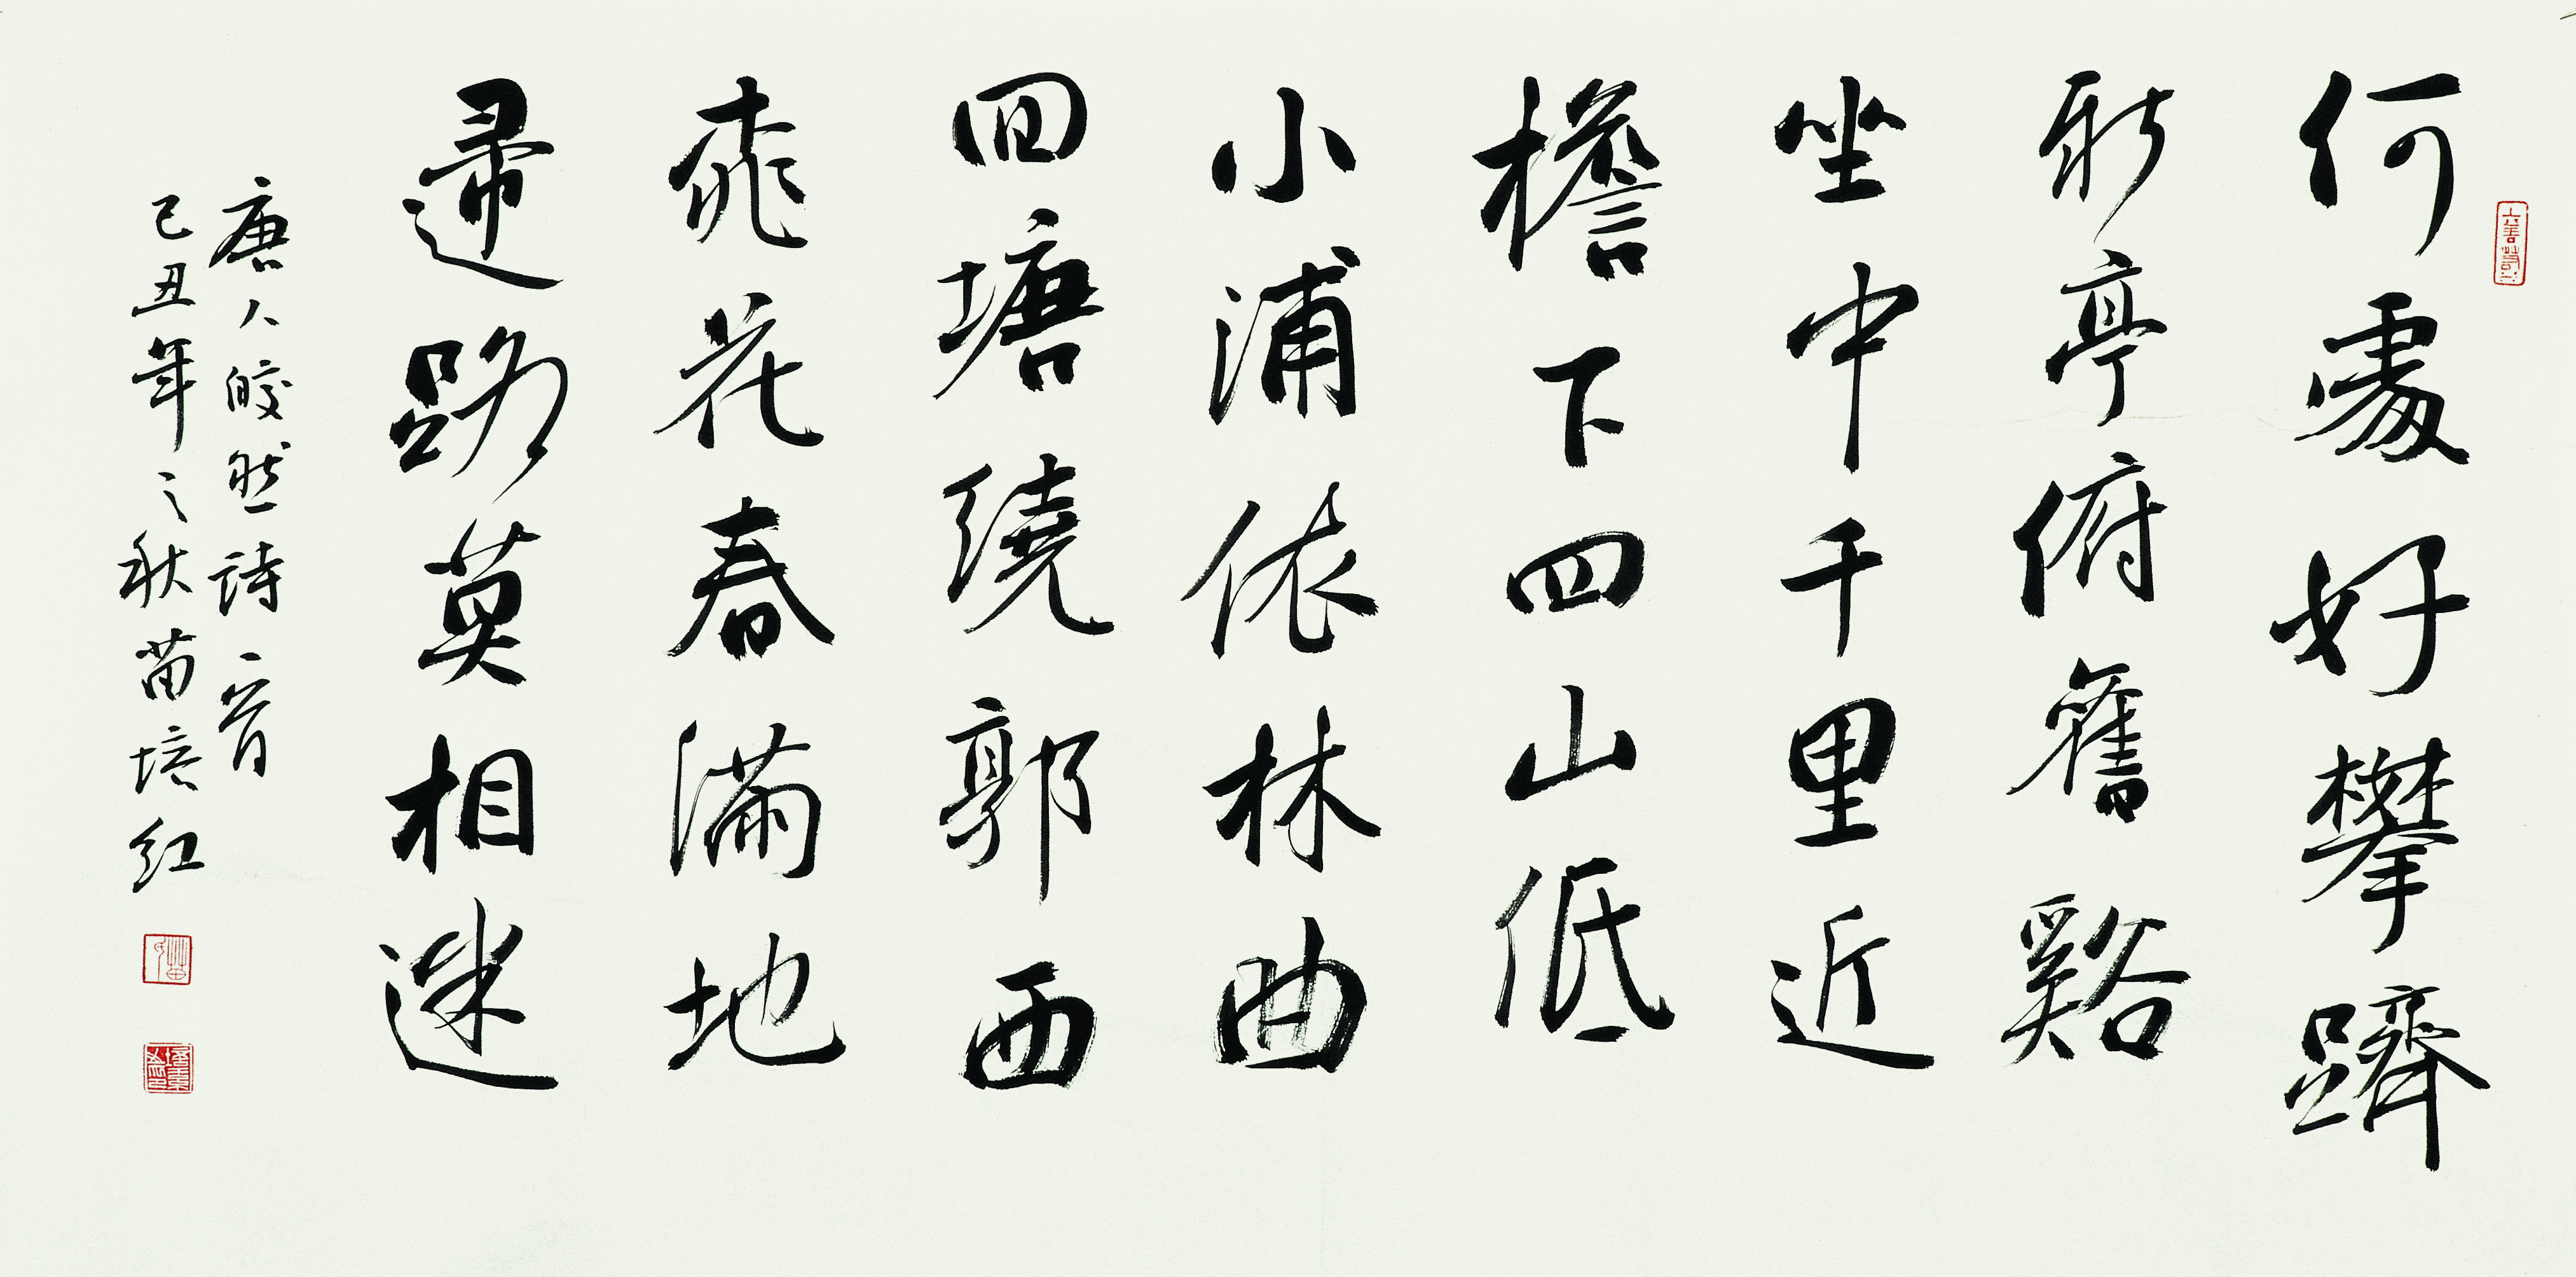 何處好攀躋
新亭俯舊谿
坐中千里近
檐下四山低
小浦依林曲
回塘繞郭西
桃花春滿地
歸路莫相迷
唐人皎然詩一首
己丑年之秋苗培红